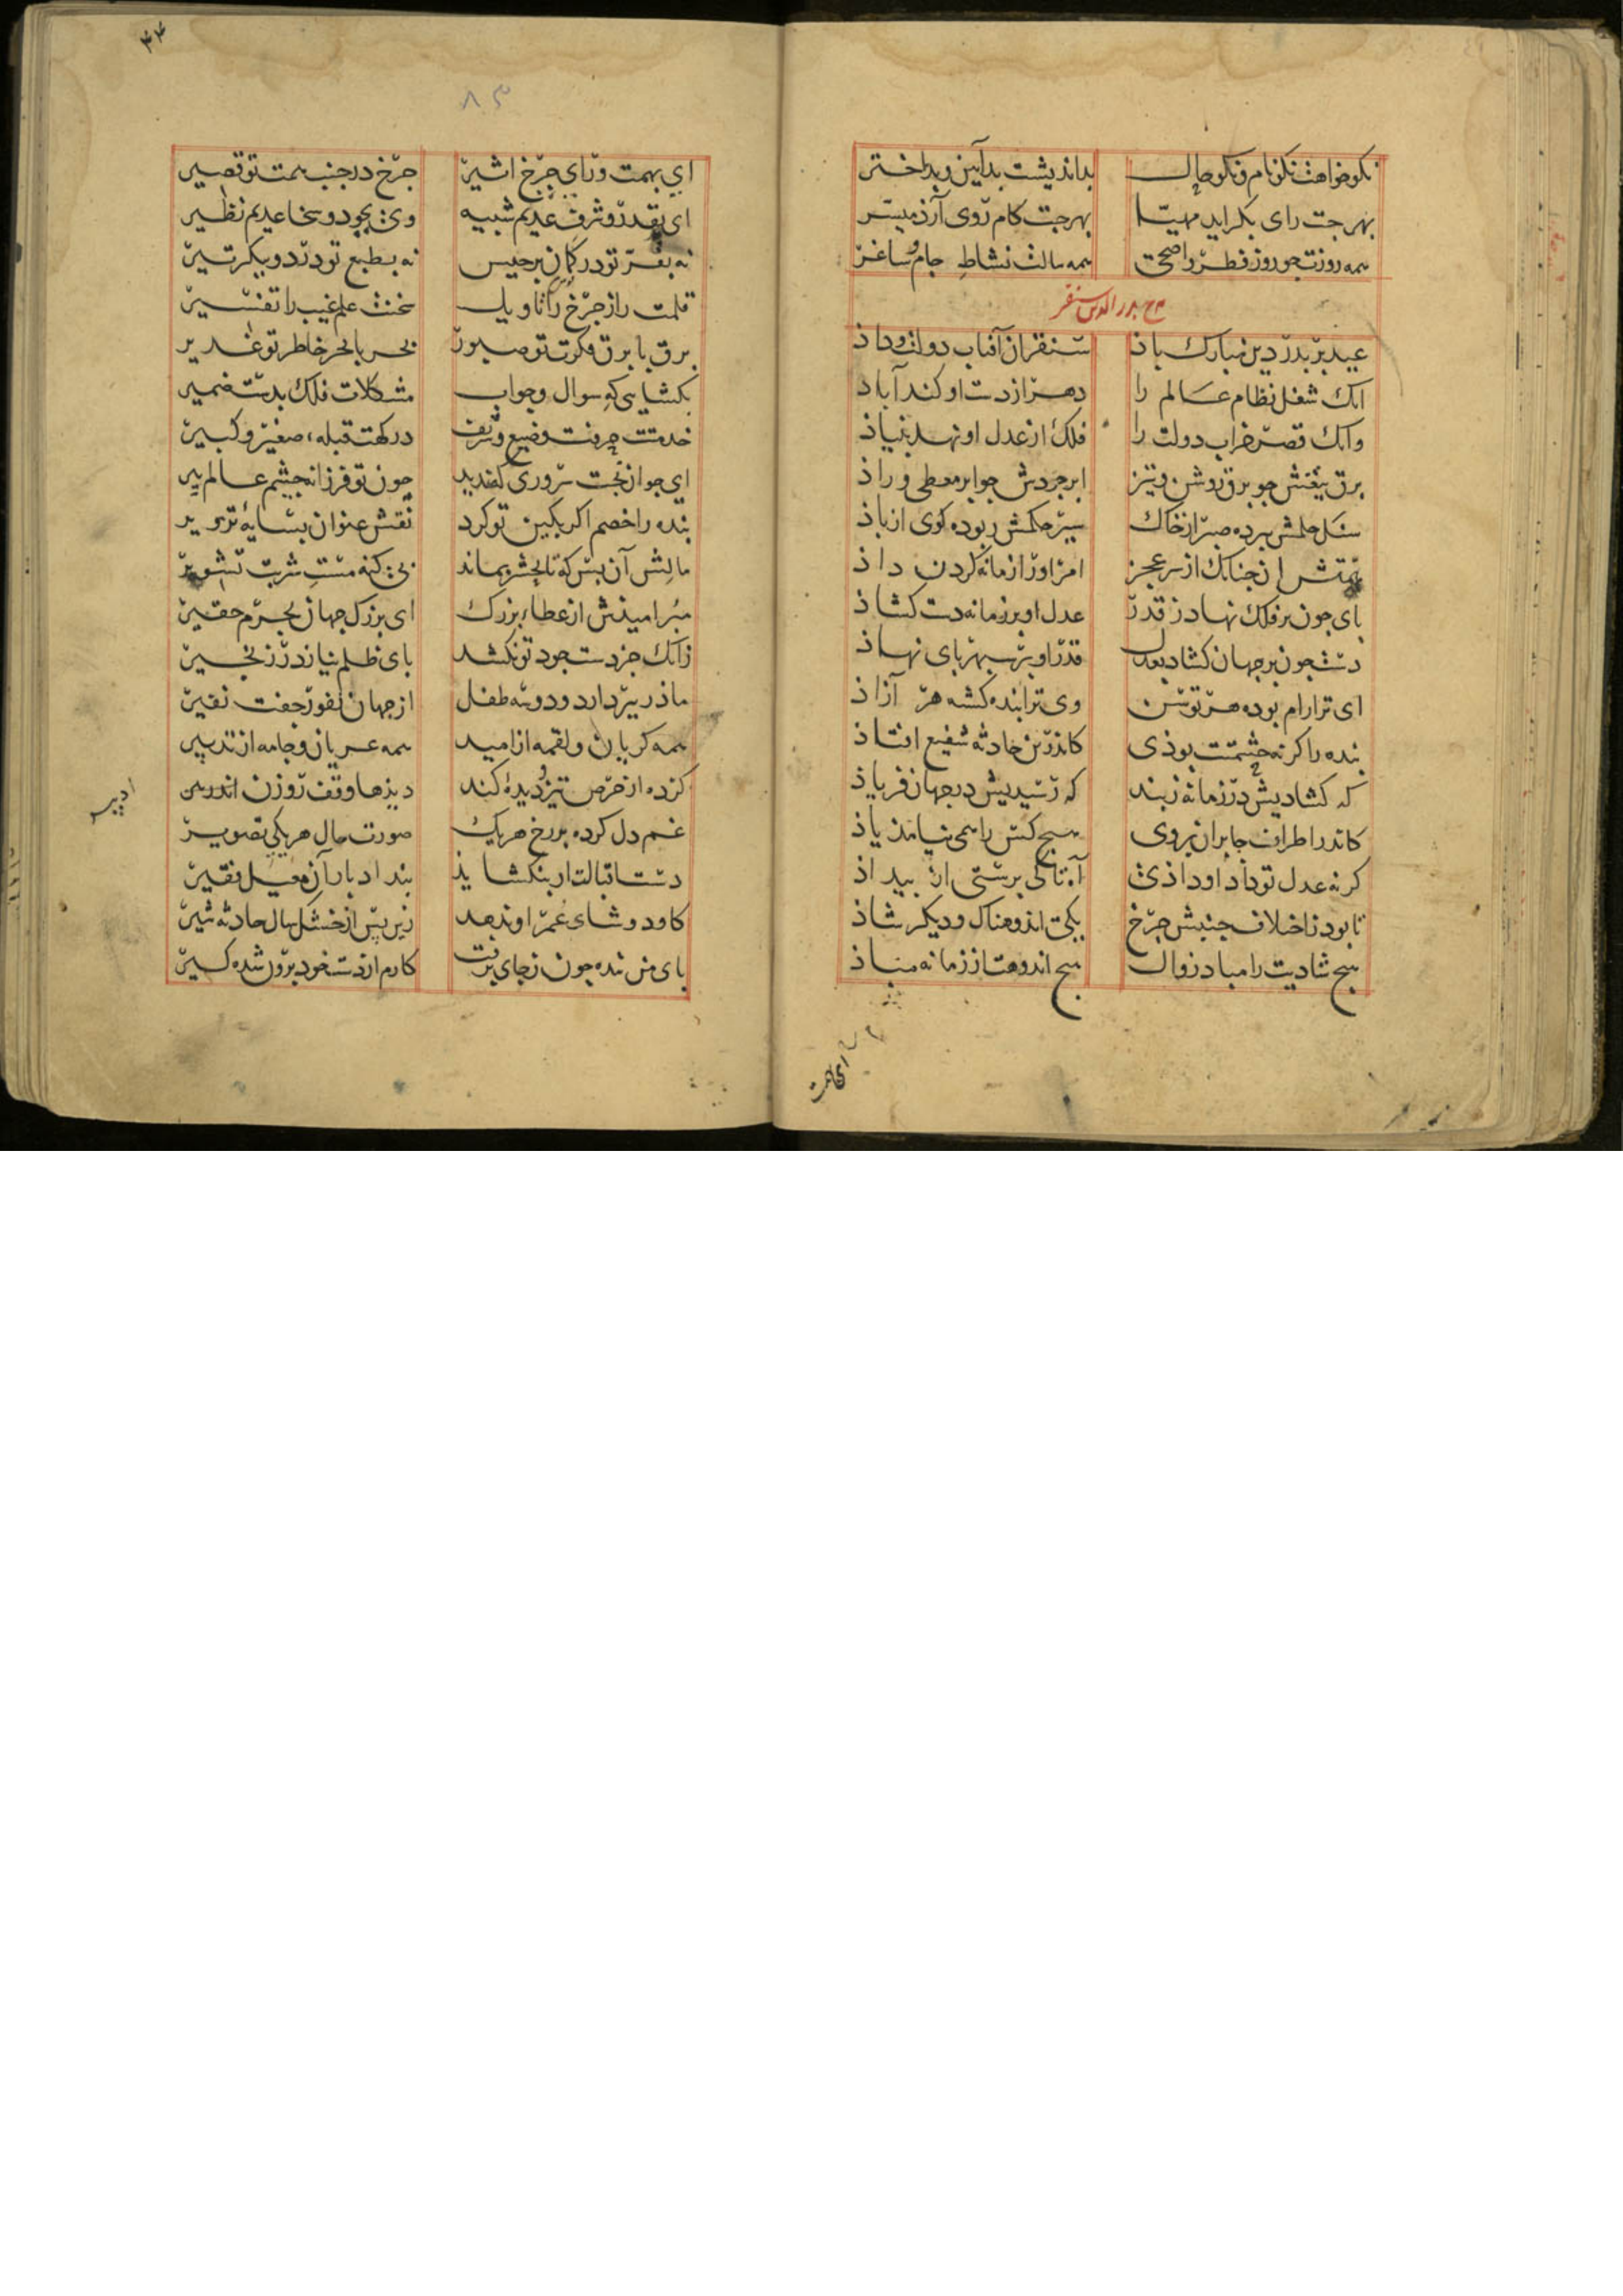 نکو خواهت نکونام و نکوحال بداندیشت بدآیین و بداختر
بهرجت رای بکراید مهیا بهرجت کام روی آرذ میسر
همه روزت جو روز فطر و اضحی همه سالت نشاط جام و ساغر
مدح بدرالدین سنقر
عید بر بدر دین مبارک باذ سنقر ان آفتاب دولت و داذ
انک شغل نظام عالم را دهر از دست او کند آباد
وانک قصر خراب دولت را فلک از عدل او نهد بنیاذ
برق تیغش جو برق روشن و تیز ابر جودش جو ابر معطی و راذ
سنک حلمش ببرده صبر از خاک سیر حکمش ربوده کوی از باذ
همتش از جنانک از سر عجز امر او را زمانه کردن داذ
بای جون بر فلک نهاد ز قدر عدل او بر زمانه دست کشاذ
دست جون بر جهان کشاد بعدل قدر او بر سبهر بای نهاذ
ای ترا رام بوده هر توسن وی ترا بنده کشته هر آزاذ
بنده را کر نه حشمتت بوذی کاندرین حادثه شفیع افتاذ
که کشادیش در زمانه ز بند که رسیدیش در جهان فریاذ
کاندر اطراف جابران بروی هیج کس را همی نیامذ یاذ
کر نه عدل تو داد او داذی آه تا کی برستی از بیداذ
تا بود ز اختلاف جنبش جرخ یکی اندوهناک و دیکر شاذ
هیج شادیت را مباد زوال هیج اندوهت از زمانه مباذ
۸۳
ای بهمت ورای جرخ اثیر جرخ در جنب همت تو قصیر
ای بقدر و شرف عدیم شبیه وی بجود و سخا عدیم نظیر
نه بفر تو در کمان برجیس نه بطبع تو در دو بیکر تیر
قلمت راز جرخ را تاویل سخنت علم غیب را تفسیر
برق با برق فکرت تو صبور بحر با بحر خاطر تو غدیر
بکشایی که سوال و جواب مشکلات فلک بدست ضمیر
خدمتت حرفت وضیع و شریف درکهت قبله صغیر و کبیر
ای جوانبخت سروری که ندید جون تو فرزانه جشم عالم بیر
بنده را خصم اکر بکین تو کرد نقش عنوان بسایهٔ تزویر
مالش آن بس که تا بحشر بماند بی کنه مست شربت تشویر
مبر امیدش از عطا بزرک ای بزرک جهان بجرم حقیر
زانک جز دست جود تو نکشد بای ظلم نیاز در زنجیر
ماذر بیر دارد و دو سه طفل از جهان نفور جفت نفیر
همه کریان و لقمه از امید همه عریان و جامه از تدبیر
کرده از حرص تیز و دیدهٔ کند دیذها وقف روزن ادبیر
غم دل کرده بر رخ هر یک صورت حال هر یکی تصویر
دست اقبالت ار بنکشایذ بند ادبار آن معیل فقیر
کاود وشای عمر او ندهد زین بس از خشک سال حادثه شیر
بای من بنده جون ز جای برفت کارم از دست خود برون شده کیر